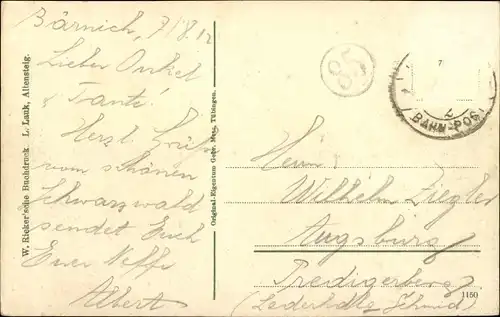 Bärnich, 7/8.12
Lieber Onkel
& Tante!
Herzl. Grüße
vom schönen
Schwarzwald
sendet Euch
Euer Neffe
Albert
W. Rieker'sche Buchdruck. L. Lauk, Altensteig.
Original-Eigentum Gebr. Metz, Tübingen.
85
7
2
BAHNPOST
Herrn
Wilhelm Ziegler
Augsburg
Predigerberg
1150